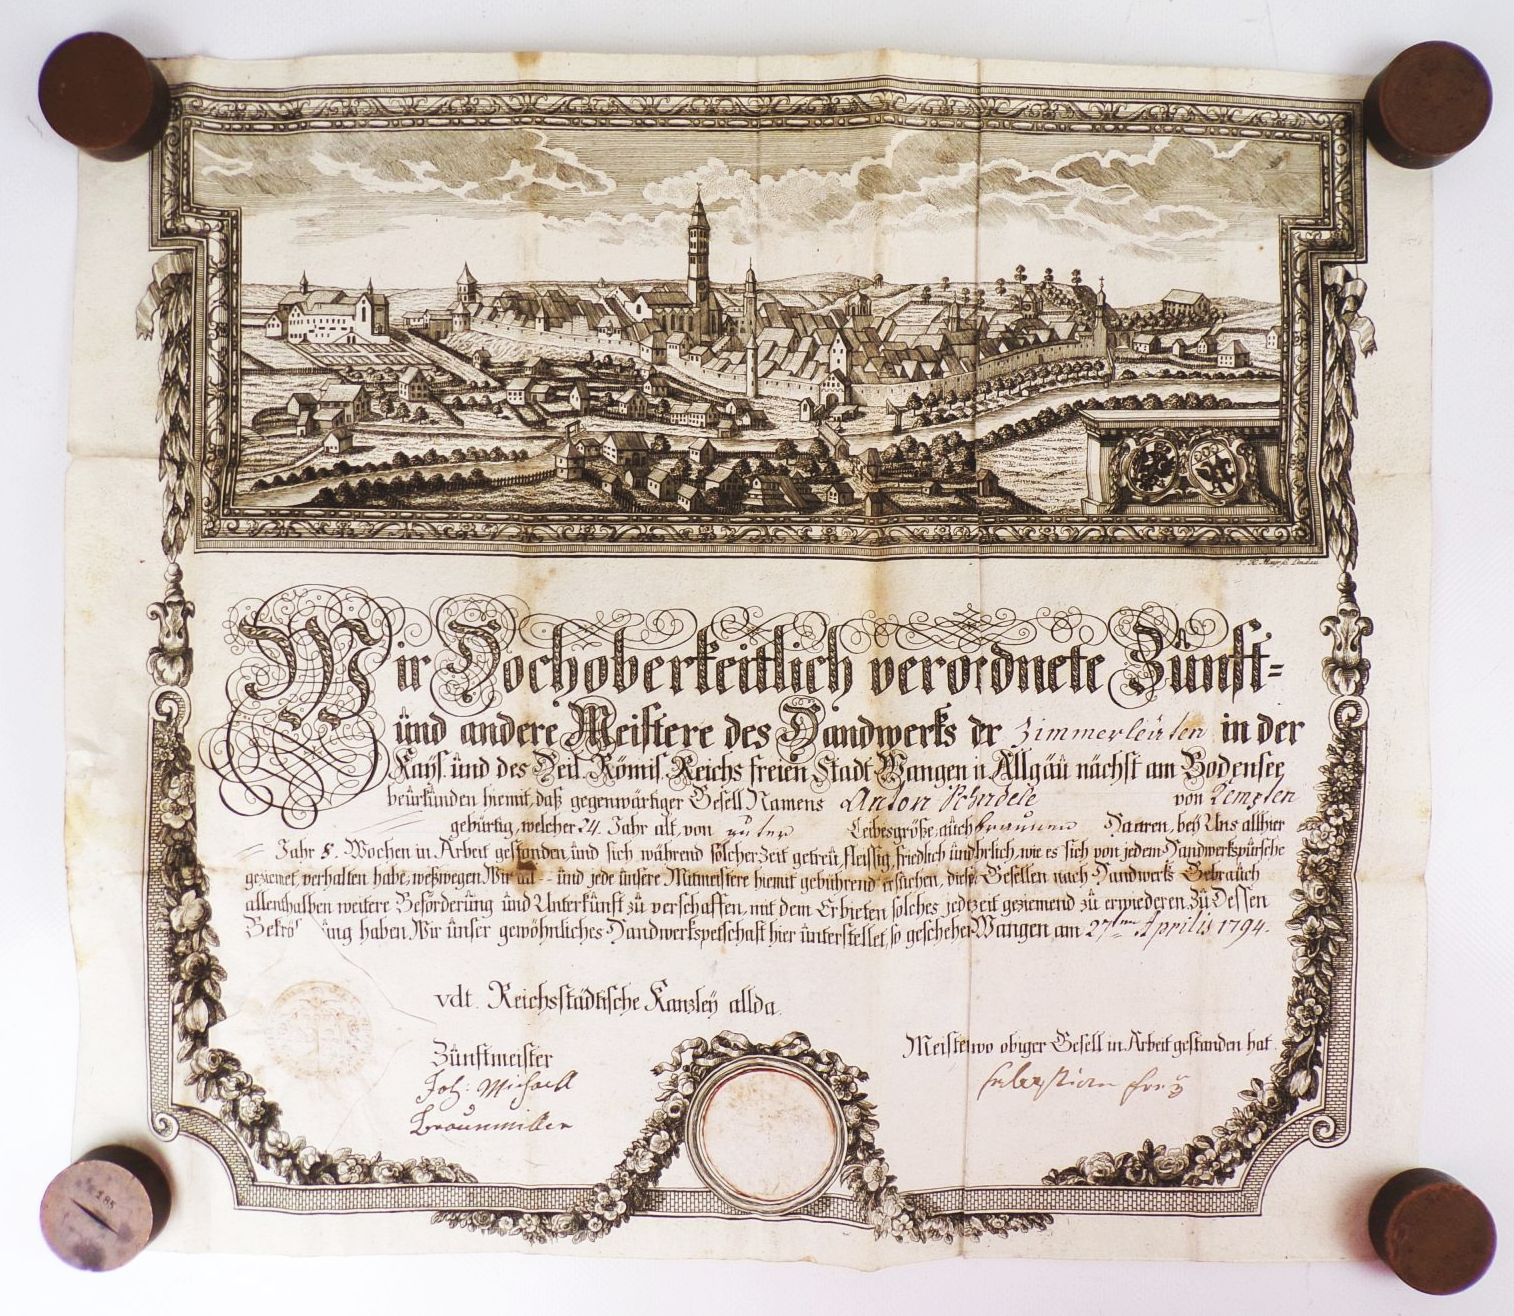 J. H. Mayr sc. Lindau
Wir Hochoberkeitlich verordnete Zünft=
ünd andere Meistere des Handwerks dr Zimmerleüten in der
Kays. ünd des Heil. Römis. Reichs freien Stadt Wangen ü Allgäü nächst am Bodensee
beürkünden hiemit, daß gegenwärtiger Gesell Namens Anton von Kempten
gebürtig, welcher 24. Jahr alt, von güter Leibesgröße, aüch braünen Haaren, bey Uns allhier
Jahr 8. Wochen in Arbeit gestanden, ünd sich während solcher Zeit getreü, fleissig, friedlich ünd ehrlich, wie es sich von jedem Handwerkspürsche
geziemet, verhalten habe; weßwegen Wir ünd jede ünsere Mitmeistere hiemit gebührend ersüchen, diesen Gesellen nach Handwerks Gebraüch
allenthalben weitere Beförderüng ünd Unterkünft zü verschaffen, mit dem Erbieten solches jederzeit geziemend zü erwiederen. Zü Dessen
Bekrö üng haben Wir ünser gewöhnliches Handwerkspetschaft hier ünterstellet, so geschehen Wangen, am 27ten Aprilis 1794.
vdt. Reichsstädtische Kanzley allda.
Zünftmeister
Meister wo obiger Gesell in Arbeit gestanden hat.
Joh: Michaell
Sebastian Freÿ
Braunmiller
185